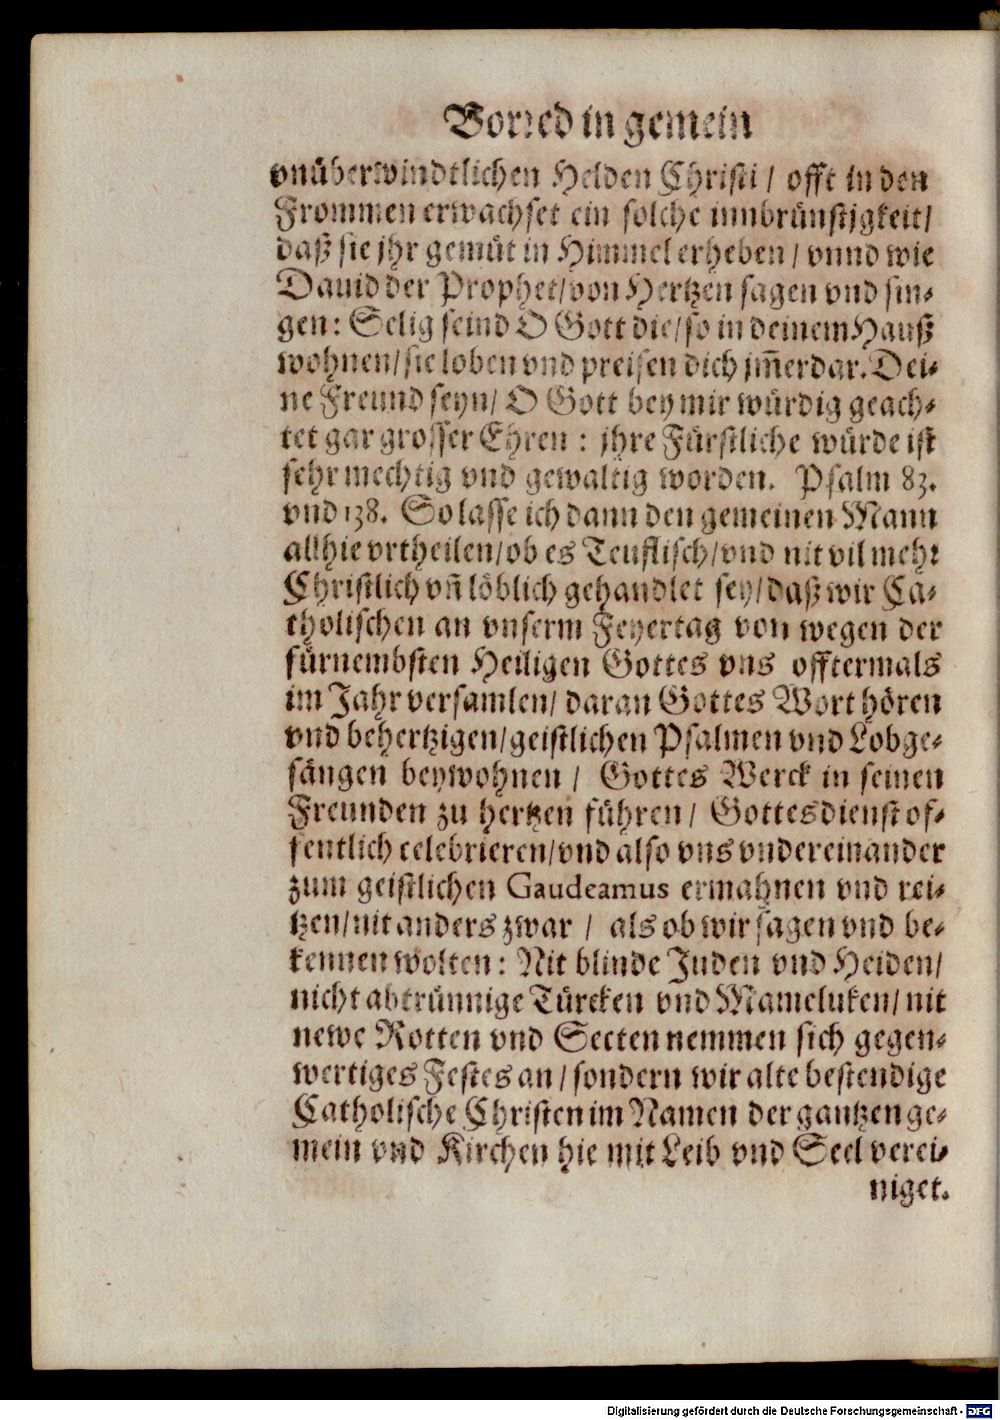 Vorred in gemein
vnüberwindtlichen Helden Christi / offt in den
Frommen erwachset ein solche innbrünstigkeit/
daß sie jhr gemüt in Himmel erheben / vnnd wie
Dauid der Prophet/von Hertzen sagen vnd sin-
gen: Selig seind O Gott die/so in deinem Hauß
wohnen/sie loben vnd preisen dich jm̃erdar. Dei-
ne Freund seyn/ O Gott bey mir würdig geach-
tet gar grosser Ehren : jhre Fürstliche würde ist
sehr mechtig vnd gewaltig worden. Psalm 83.
vnd 138. So lasse ich dann den gemeinen Mann
allhie vrtheilen/ob es Teuflisch/vnd nit vil mehr
Christlich vñ löblich gehandlet sey/daß wir Ca-
tholischen an vnserm Feyertag von wegen der
fürnembsten Heiligen Gottes vns offtermals
im Jahr versamlen/ daran Gottes Wort hören
vnd behertzigen/geistlichen Psalmen vnd Lobge-
sängen beywohnen / Gottes Werck in seinen
Freunden zu hertzen führen/ Gottesdienst of-
fentlich celebrieren/vnd also vns vndereinander
zum geistlichen Gaudeamus ermahnen vnd rei-
tzen/nit anders zwar / als ob wir sagen vnd be-
kennen wolten: Nit blinde Juden vnd Heiden/
nicht abtrünnige Türcken vnd Mameluken/ nit
newe Rotten vnd Secten nemmen sich gegen-
wertiges Festes an / sondern wir alte bestendige
Catholische Christen im Namen der gantzen ge-
mein vnd Kirchen hie mit Leib vnd Seel verei-
niget.
Digitalisierung gefördert durch die Deutsche Forschungsgemeinschaft - DFG